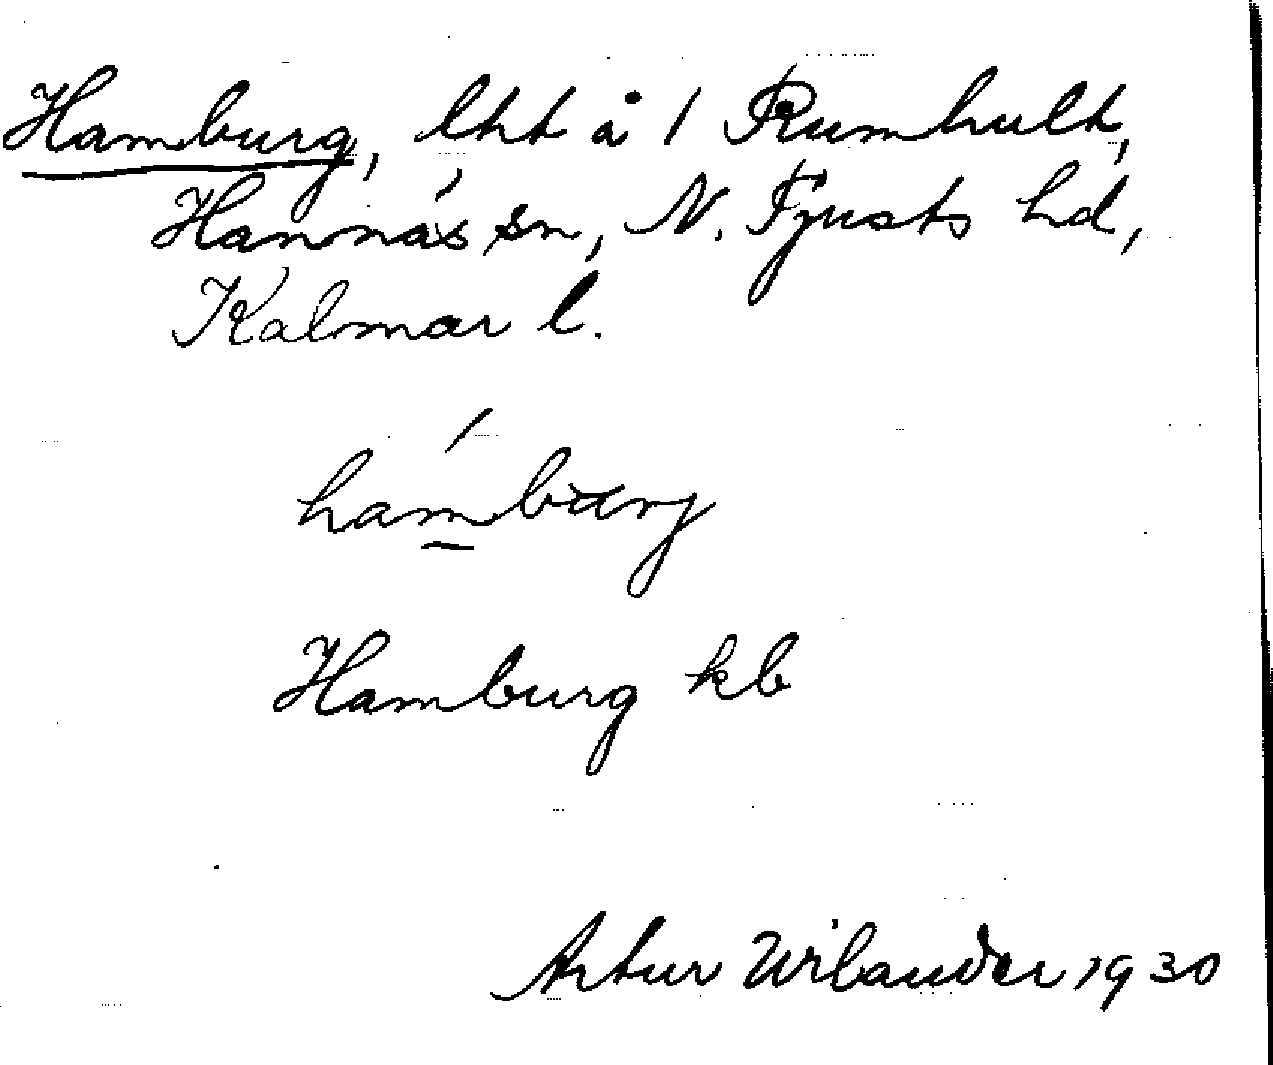 Hamburg, lht å 1 Rumhult,
Hannäs sn, N. Tjusts hd,
Kalmar l.
hámburj
Hamburg kb
Artur Wilander 1930